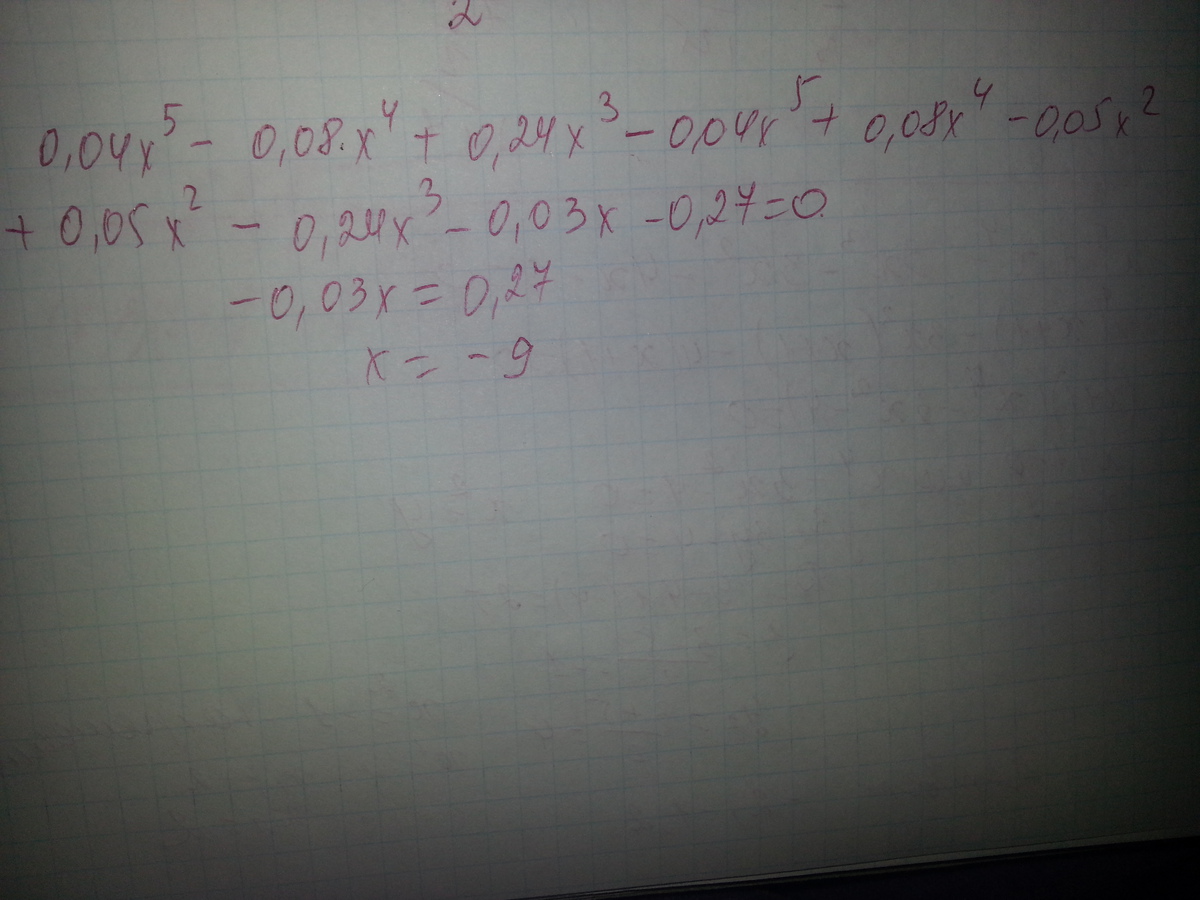 2
0,04x⁵ - 0,08·x⁴ + 0,24x³ - 0,04x⁵ + 0,08x⁴ - 0,05x²
+ 0,05x² - 0,24x³ - 0,03x - 0,27=0.
-0,03x = 0,27
x = -9